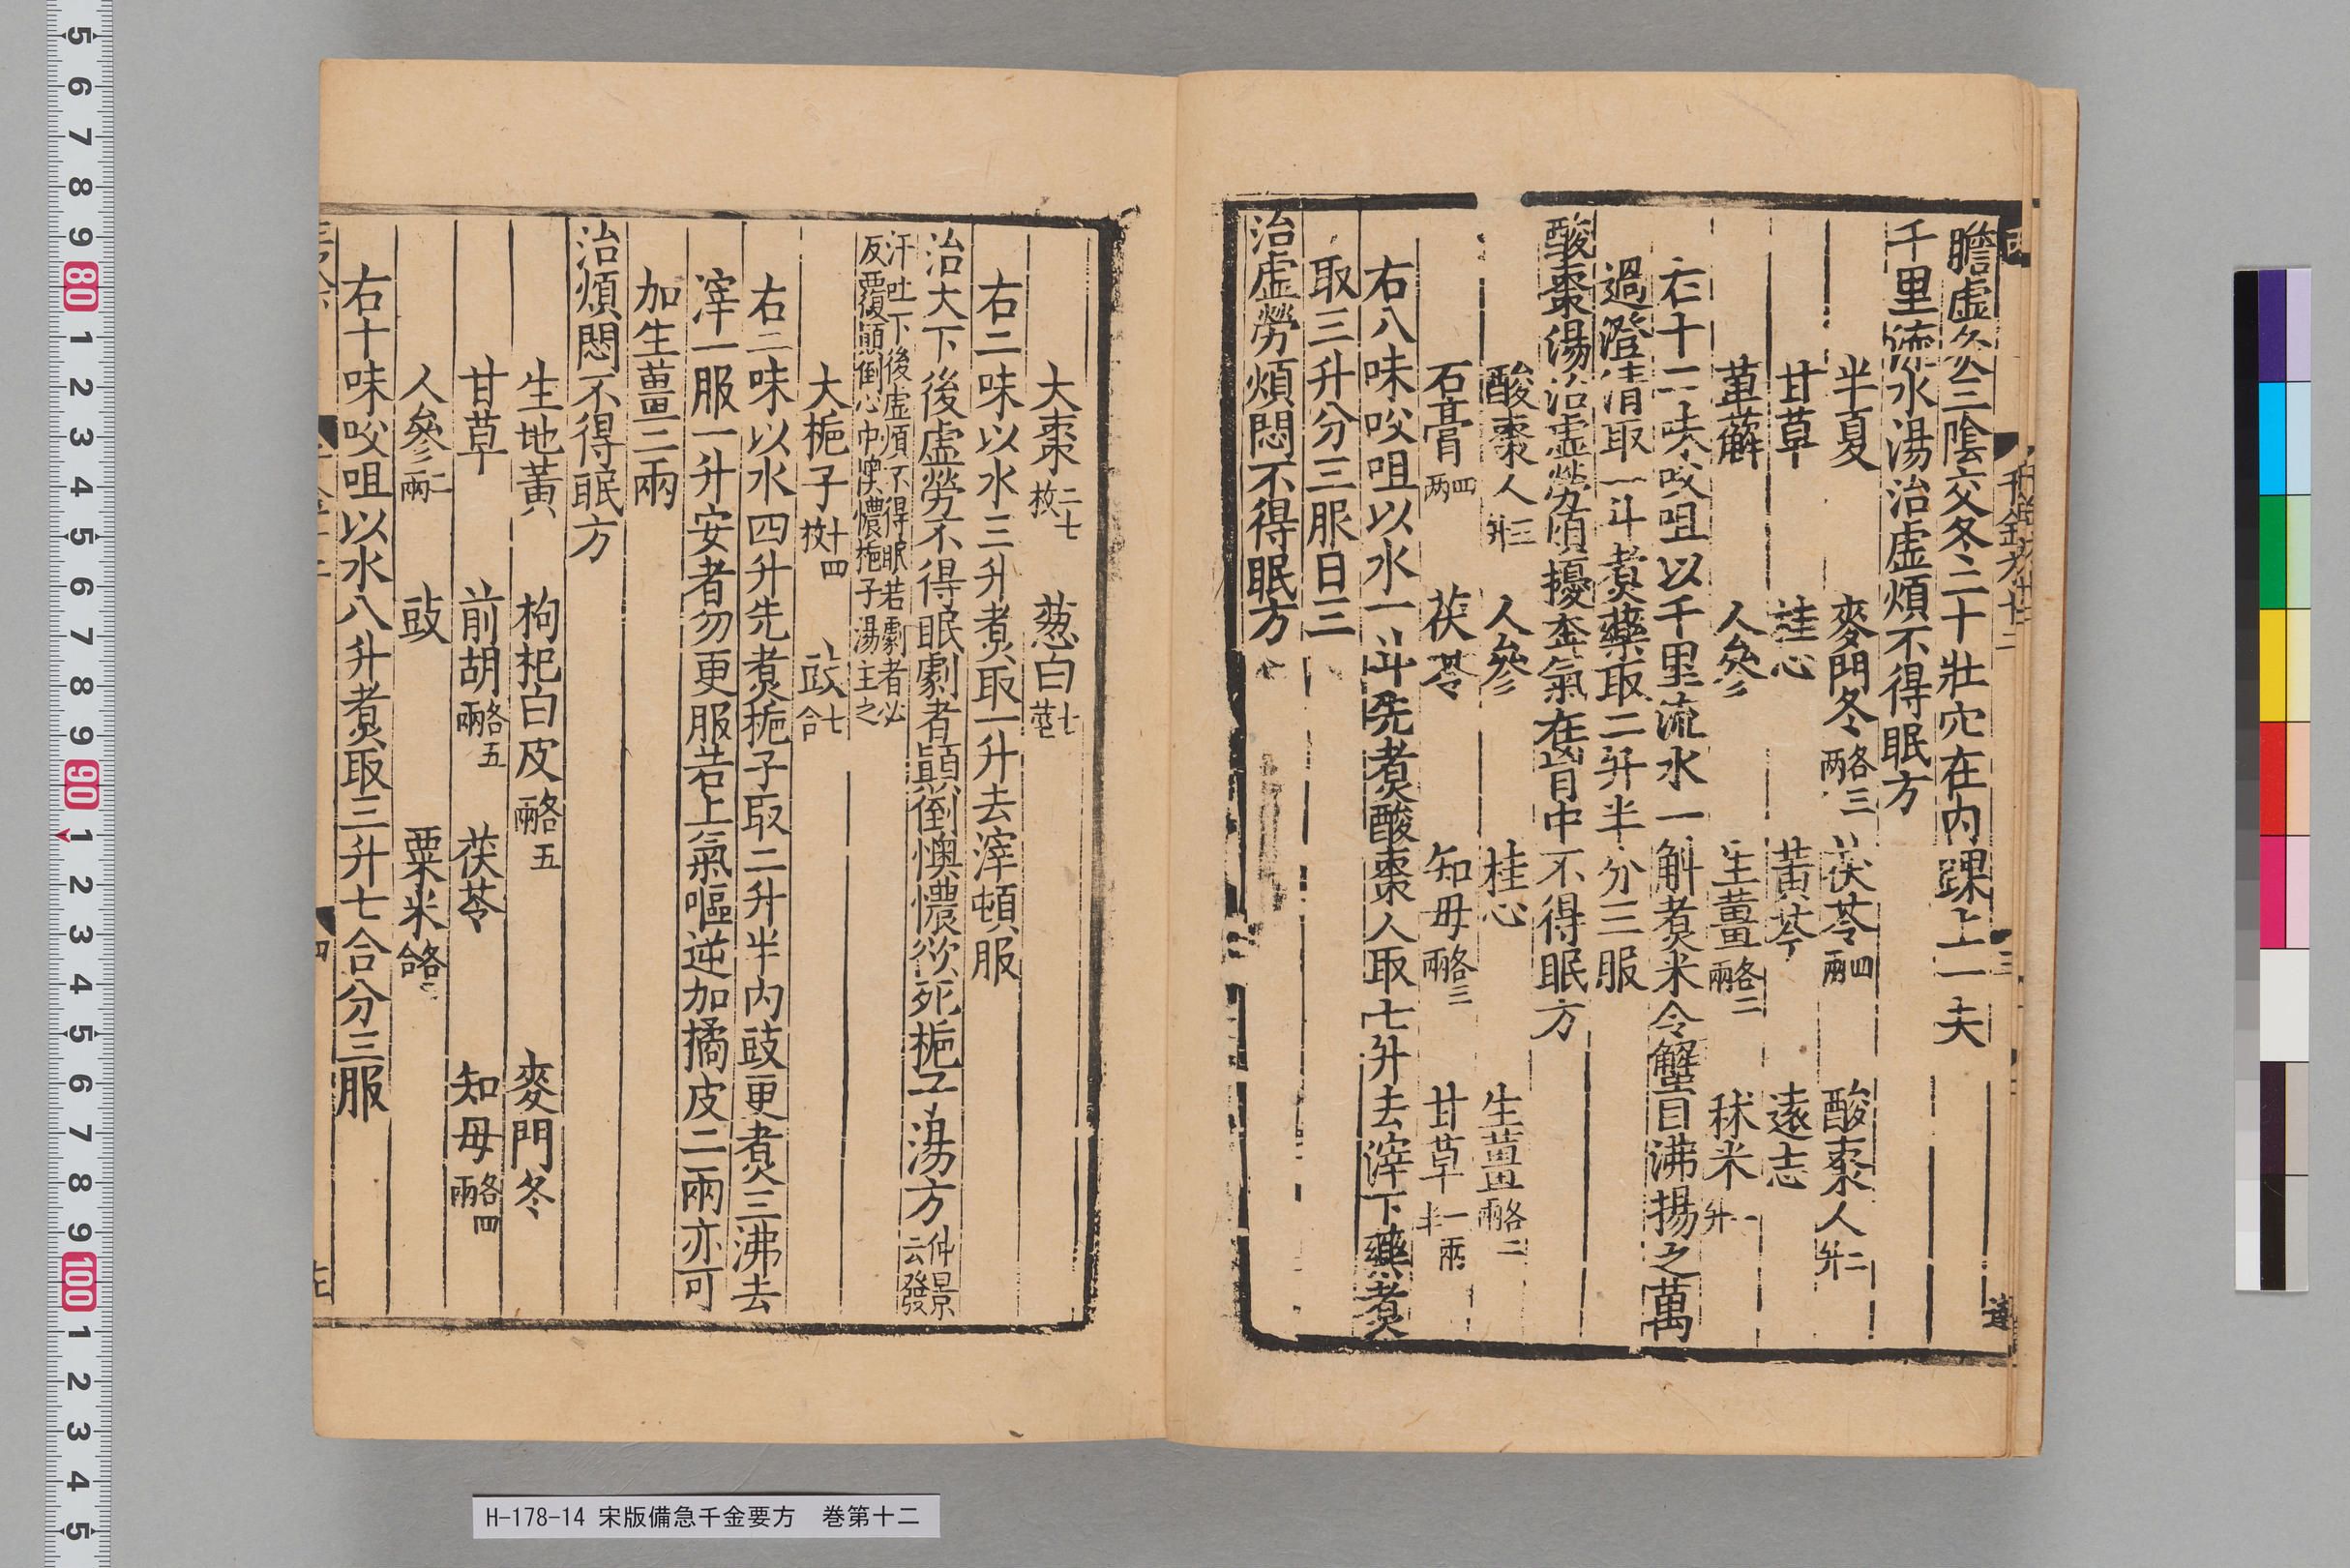 膽虚灸三陰交各二十壯穴在內踝上一夫
千里流水湯治虚煩不得眠方
半夏 麥門冬各三兩 茯苓四兩 酸棗人二升
甘草 桂心 黃芩 遠志
萆薢 人參 生薑各二兩 秫米一升
右十二味㕮咀以千里流水一斛煮米令蟹目沸揚之萬
過澄清取一斗煮藥取二升半分三服
酸棗湯治虚勞煩擾奔氣在胷中不得眠方
酸棗人三升 人參 桂心 生薑各二兩
石膏四兩 茯苓 知母各三兩 甘草一兩半
右八味㕮咀以水一斗先煮酸棗人取七升去滓下藥煮
取三升分三服日三
治虚勞煩悶不得眠方
大棗二七枚 葱白七莖
右二味以水三升煮取一升去滓頓服
治大下後虚勞不得眠劇者顚倒懊憹欲死梔子湯方仲景云發
汗吐下後虚煩不得眠若劇者必
反覆顚倒心中懊憹梔子湯主之
大梔子十四枚 豉七合
右二味以水四升先煮梔子取二升半內豉更煮三沸去
滓一服一升安者勿更服若上氣嘔逆加橘皮二兩亦可
加生薑二兩
治煩悶不得眠方
生地黃 枸杞白皮各五兩 麥門冬
甘草 前胡各五兩 茯苓 知母各四兩
人參二兩 豉 粟米各合
右十味㕮咀以水八升煮取三升七合分三服
H-178-14 宋版備急千金要方 巻第十二